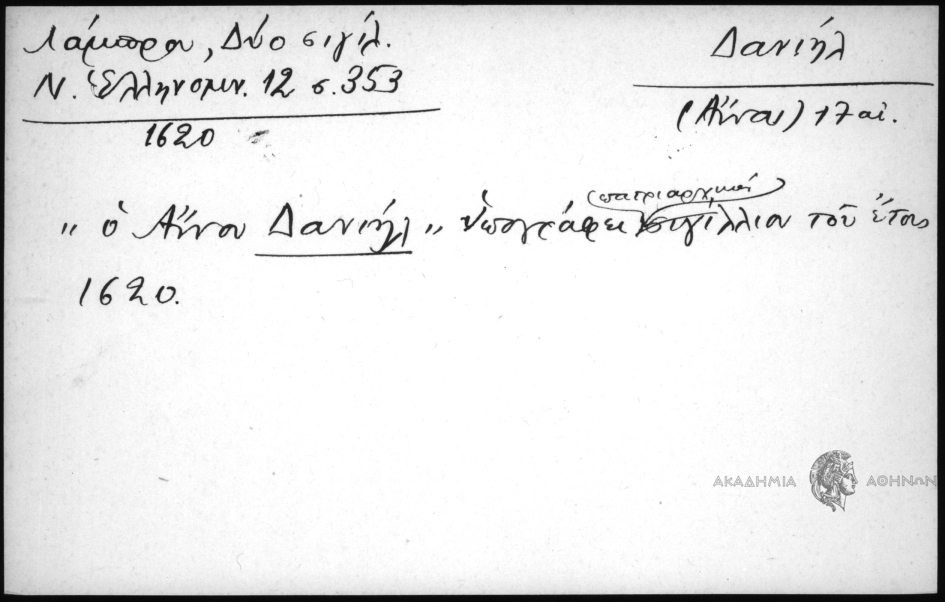 Λάμπρου, Δύο σιγίλ.
Ν. Ἑλληνομν. 12 σ. 353
1620
Δανιήλ
(Αἴνου) 17 αἰ.
(πατριαρχικόν)
„ ὁ Αἴνου Δανιήλ „ ὑπογράφει σιγίλλιον τοῦ ἔτους
1620.
ΑΚΑΔΗΜΙΑ ΑΘΗΝΩΝ